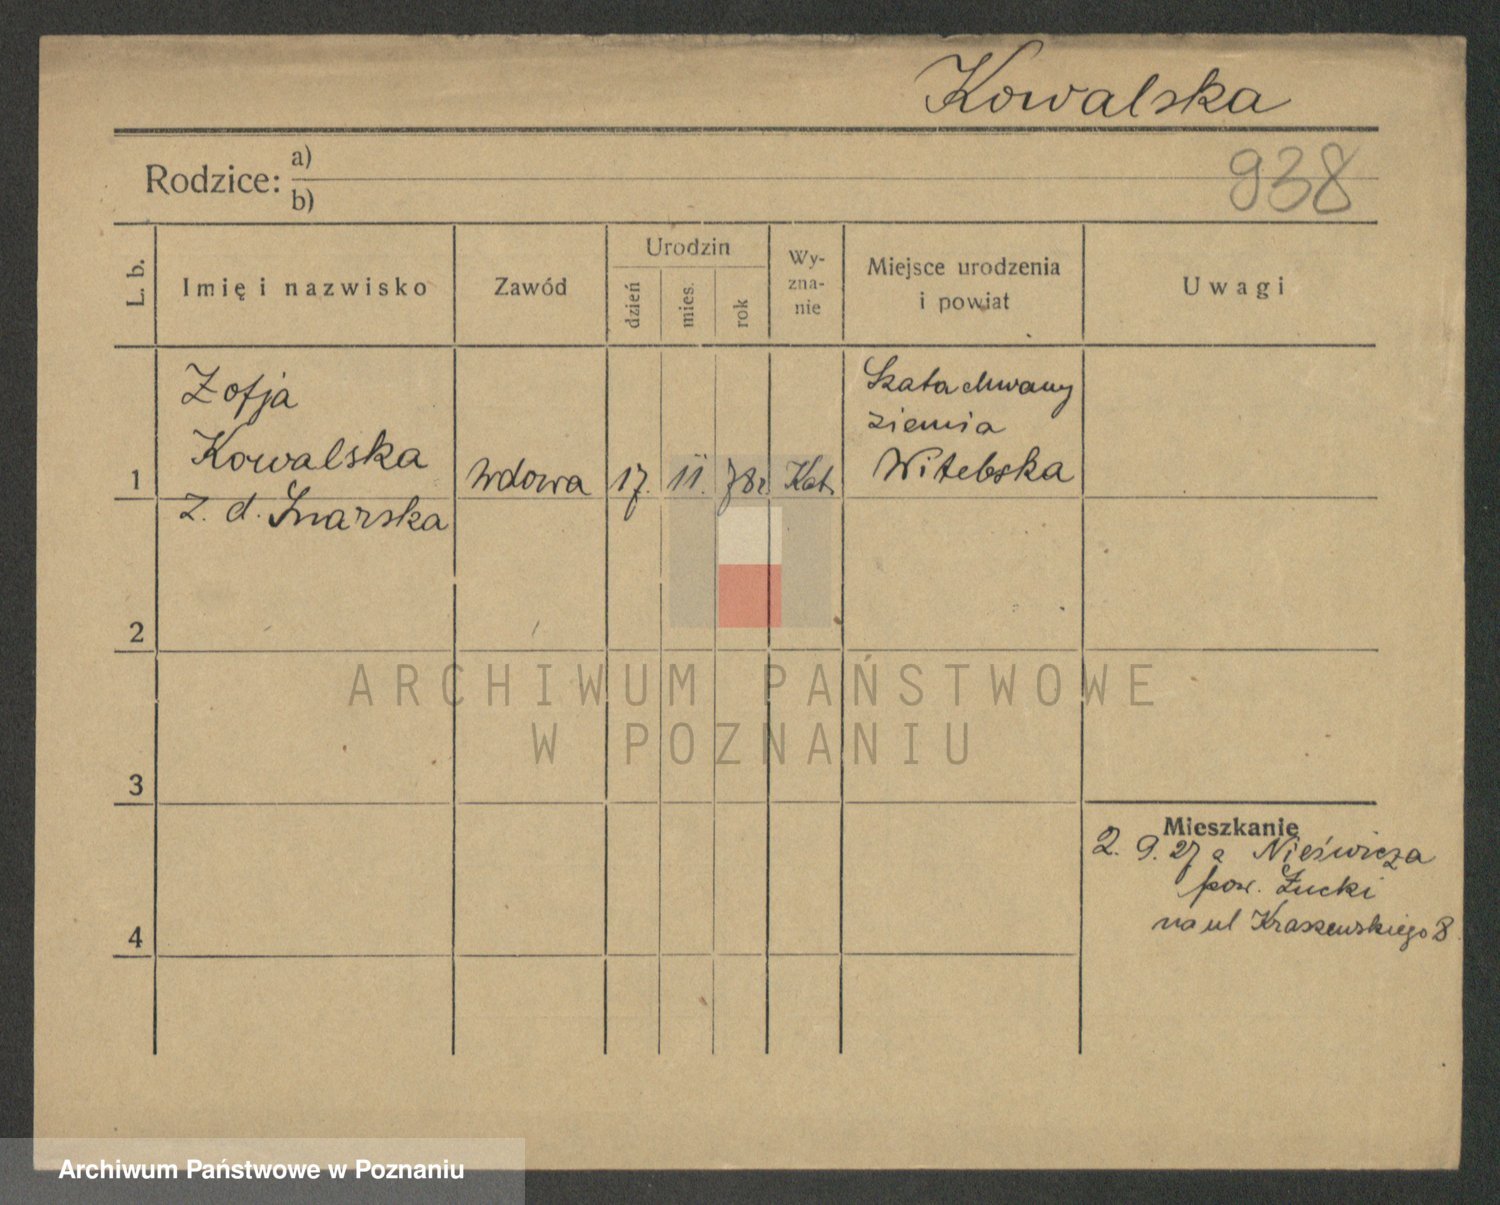 Kowalska
Rodzice: a)
b)
938
L. b.
Imię i nazwisko
Zawód
Urodzin
dzień
mies.
rok
Wy-
zna-
nie
Miejsce urodzenia
i powiat
Uwagi
1
Zofja
Kowalska
z. d. Snarska
wdowa
17.
11.
78r.
Kat.
ziemia
Witebska
2
3
4
Mieszkanie
2. 9. 27 a Nieświeża
pow. Łucki
na ul Kraszewskiego 8
ARCHIWUM PAŃSTWOWE
W POZNANIU
Archiwum Państwowe w Poznaniu